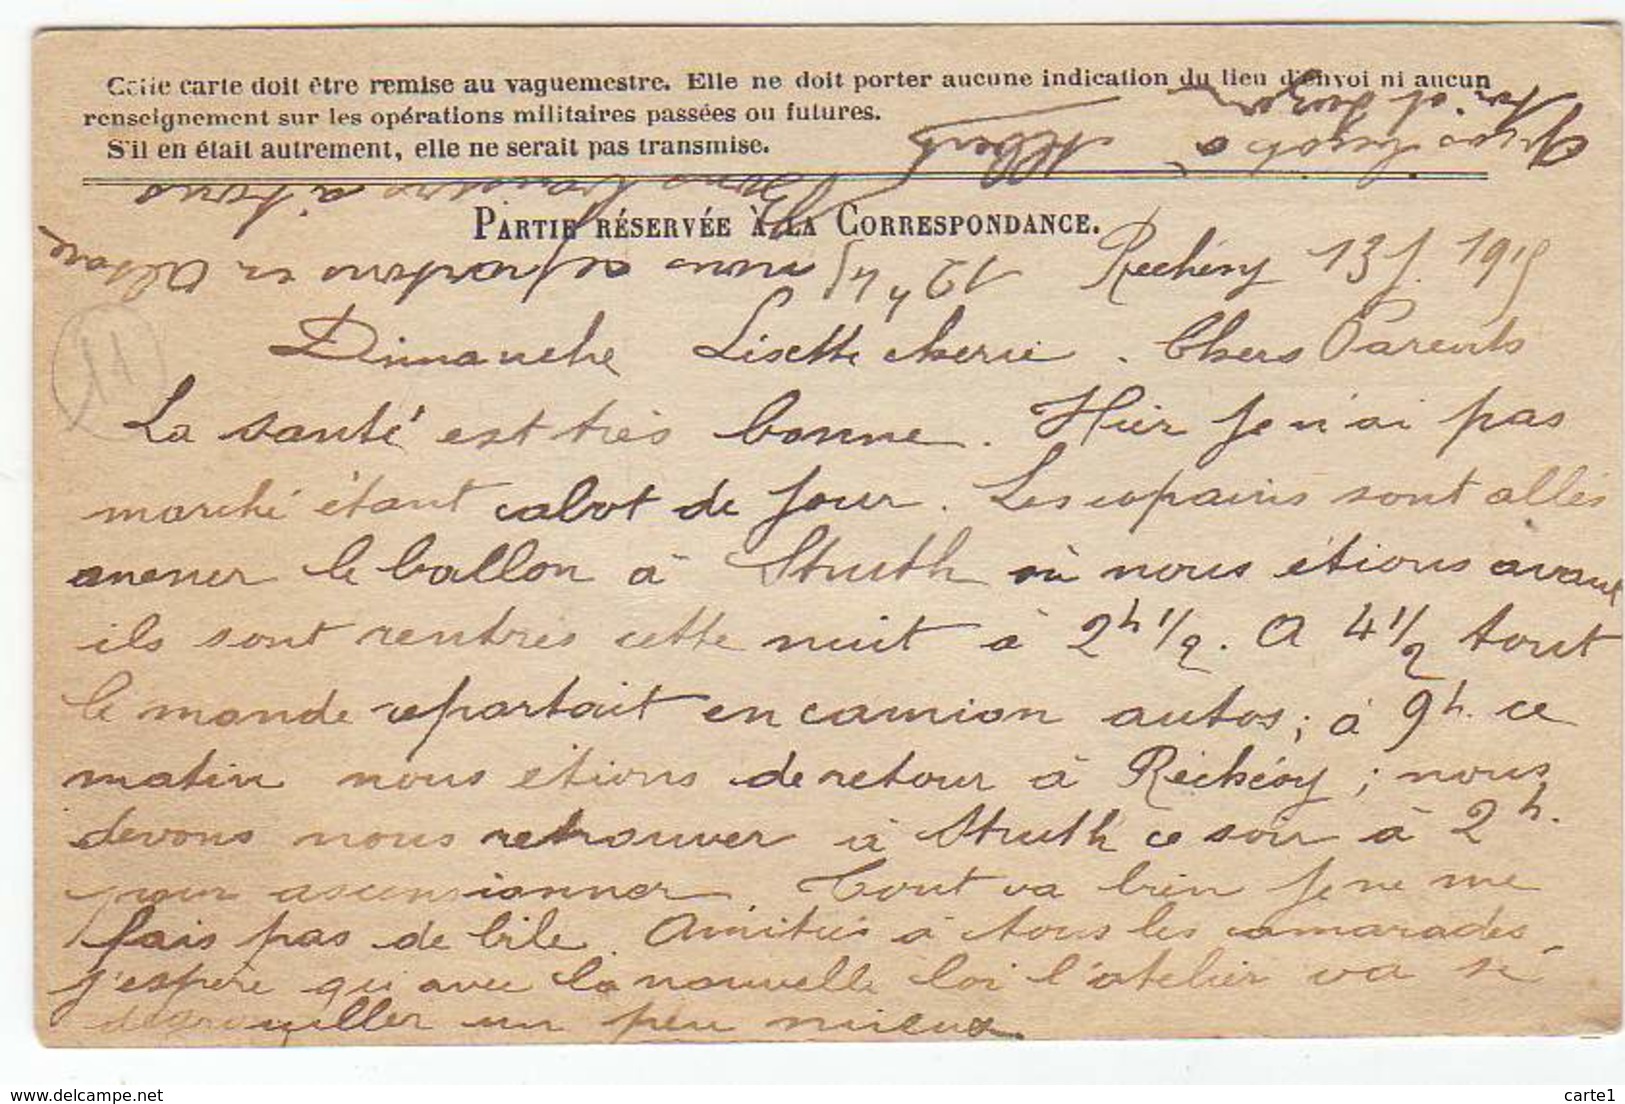 Cette carte doit être remise au vaguemestre. Elle ne doit porter aucune indication du lieu d'envoi ni aucun
renseignement sur les opérations militaires passées ou futures.
S'il en était autrement, elle ne serait pas transmise.
PARTIE RÉSERVÉE À LA CORRESPONDANCE.
Réchésy 13 J. 1915
Dimanche Lisette cherie. Chers Parents
La santé est très bonne. Hier je n'ai pas
marché étant cabot de jour. Les copains sont allés
amener le ballon à Struth où nous étions avant
ils sont rentrés cette nuit à 2h 1/2. A 4 1/2 tout
le monde repartait en camion autos; à 9h. ce
matin nous étions de retour à Réchésy; nous
devons nous retrouver à Struth ce soir à 2h.
pour ascensionner. Tout va bien je ne me
fais pas de bile. Amitiés à tous les camarades,
j'espère qu'avec la nouvelle loi l'atelier va se
degrouiller un peu mieux.
12h 45 nous repartons en Alsace
Bons baisers à tous
Gros bécots à
Albert
11
carte1